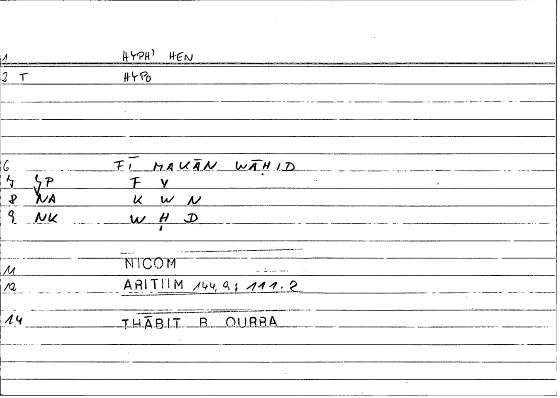 1 HYPH' HEN
2 T HYPO
6 FĪ MAKĀN WĀḤID
7 ȷP F Y
8 NA K W N
9 NK W Ḥ D
11 NICOM
12 ARITIIM 144,9; 111.2
14 THĀBIT B QURRA